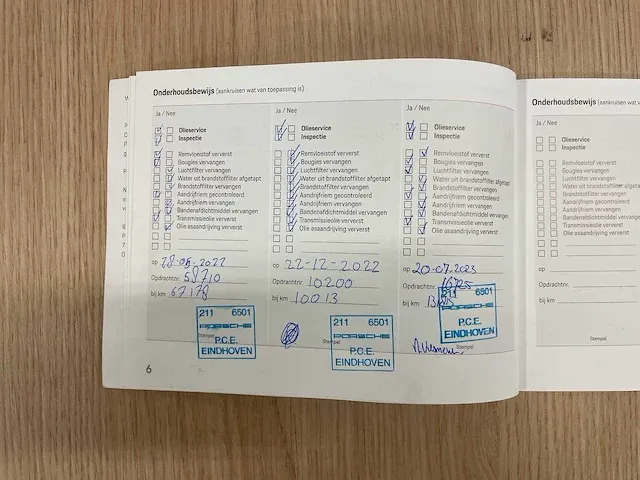 Onderhoudsbewijs (aankruisen wat van toepassing is)
Ja / Nee
Olieservice
Inspectie
Remvloeistof ververst
Bougies vervangen
Luchtfilter vervangen
Water uit brandstoffilter afgetapt
Brandstoffilter vervangen
Aandrijfriem gecontroleerd
Aandrijfriem vervangen
Bandenafdichtmiddel vervangen
Transmissieolie ververst
Olie asaandrijving ververst
op 28-06-2022
Opdrachtnr. 58710
bij km 67178
211 6501
PORSCHE
P.C.E.
EINDHOVEN
Ja / Nee
Olieservice
Inspectie
Remvloeistof ververst
Bougies vervangen
Luchtfilter vervangen
Water uit brandstoffilter afgetapt
Brandstoffilter vervangen
Aandrijfriem gecontroleerd
Aandrijfriem vervangen
Bandenafdichtmiddel vervangen
Transmissieolie ververst
Olie asaandrijving ververst
op 22-12-2022
Opdrachtnr. 10200
bij km 10013
Stempel
211 6501
PORSCHE
P.C.E.
EINDHOVEN
Ja / Nee
Olieservice
Inspectie
Remvloeistof ververst
Bougies vervangen
Luchtfilter vervangen
Water uit brandstoffilter afgetapt
Brandstoffilter vervangen
Aandrijfriem gecontroleerd
Aandrijfriem vervangen
Bandenafdichtmiddel vervangen
Transmissieolie ververst
Olie asaandrijving ververst
op 20-07-2023
Opdrachtnr.
bij km
Stempel
211 6501
PORSCHE
P.C.E.
EINDHOVEN
6
Onderhoudsbewijs (aankruisen wat va
Ja / Nee
Olieservice
Inspectie
Remvloeistof ververst
Bougies vervangen
Luchtfilter vervangen
Water uit brandstoffilter afgeta
Brandstoffilter vervangen
Aandrijfriem gecontroleerd
Aandrijfriem vervangen
Bandenafdichtmiddel vervange
Transmissieolie ververst
Olie asaandrijving ververst
op
Opdrachtnr.
bij km
Stempel